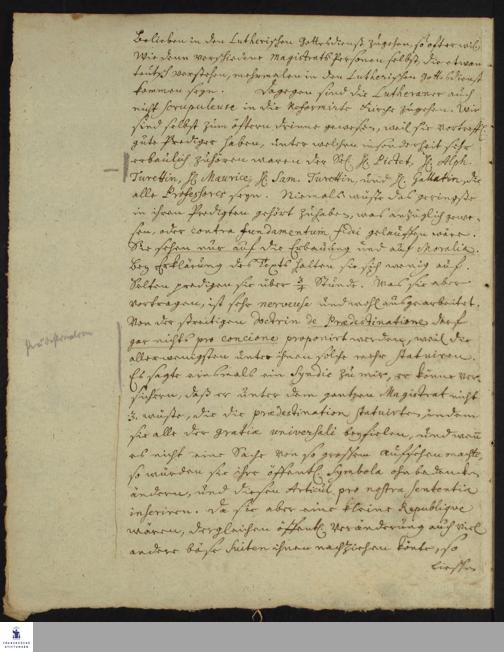 belieben in den Lutherischen Gottesdienst zugehen, so offt er will,
Wie denn verschiedene Magistrats Personen selbst, die etwan
teutsch verstehen, mehrmalen in den Lutherischen Gottesdienst
kommen seyn. Dagegen sind die Lutheraner auch
nicht scrupuleuse in die Reformirte Kirche zugehen. Wir
sind selbst zum öfftern drinne gewesen, weil sie vortreffl.
gute Prediger haben, unter welchen insonderheit sehr
erbaulich zuhören waren der Sel. H. Pictet, H. Alph.
Turettin, H. Maurice, H. Sam. Turettin, und H. Gallatin, die
alle Professores seyn. Niemals wüste das geringste
in ihren Predigten gehört zuhaben, was anzüglich gewe-
sen, oder contra fundamentum fidei gelauffen wäre.
Sie sehen nur auf die Erbauung und auf Moralia.
Bey Erklärung des Texts halten sie sich wenig auf.
Selten predigen sie über 3/4 Stunde. Was sie aber
vortragen, ist sehr nerveuse und wohl ausgearbeitet.
Von der streitigen Doctrin de Prædestinatione darf
gar nichts pro concione proponirt werden, weil die
allerwenigsten unter ihnen solche mehr statuiren.
Es sagte einsmals ein Syndic zu mir, er könne ver-
sichern, daß er unter dem gantzen Magistrat nicht
3. wüste, die die prædestination statuirten, indem
sie alle der gratia universali beyfielen, und wenn
es nicht eine Sache von so grossem Aufsehen machte,
so würden sie ihre öffentl. Symbola ohne bedencken
ändern, und diesen Articul pro nostra sententia
inseriren. Da sie aber eine kleine Republique
wären, dergleichen öffentl. Veränderung auch viel
andere böse Suiten ihnen nachziehen könte, so
liessen
FRANCKESCHE
STIFTUNGEN